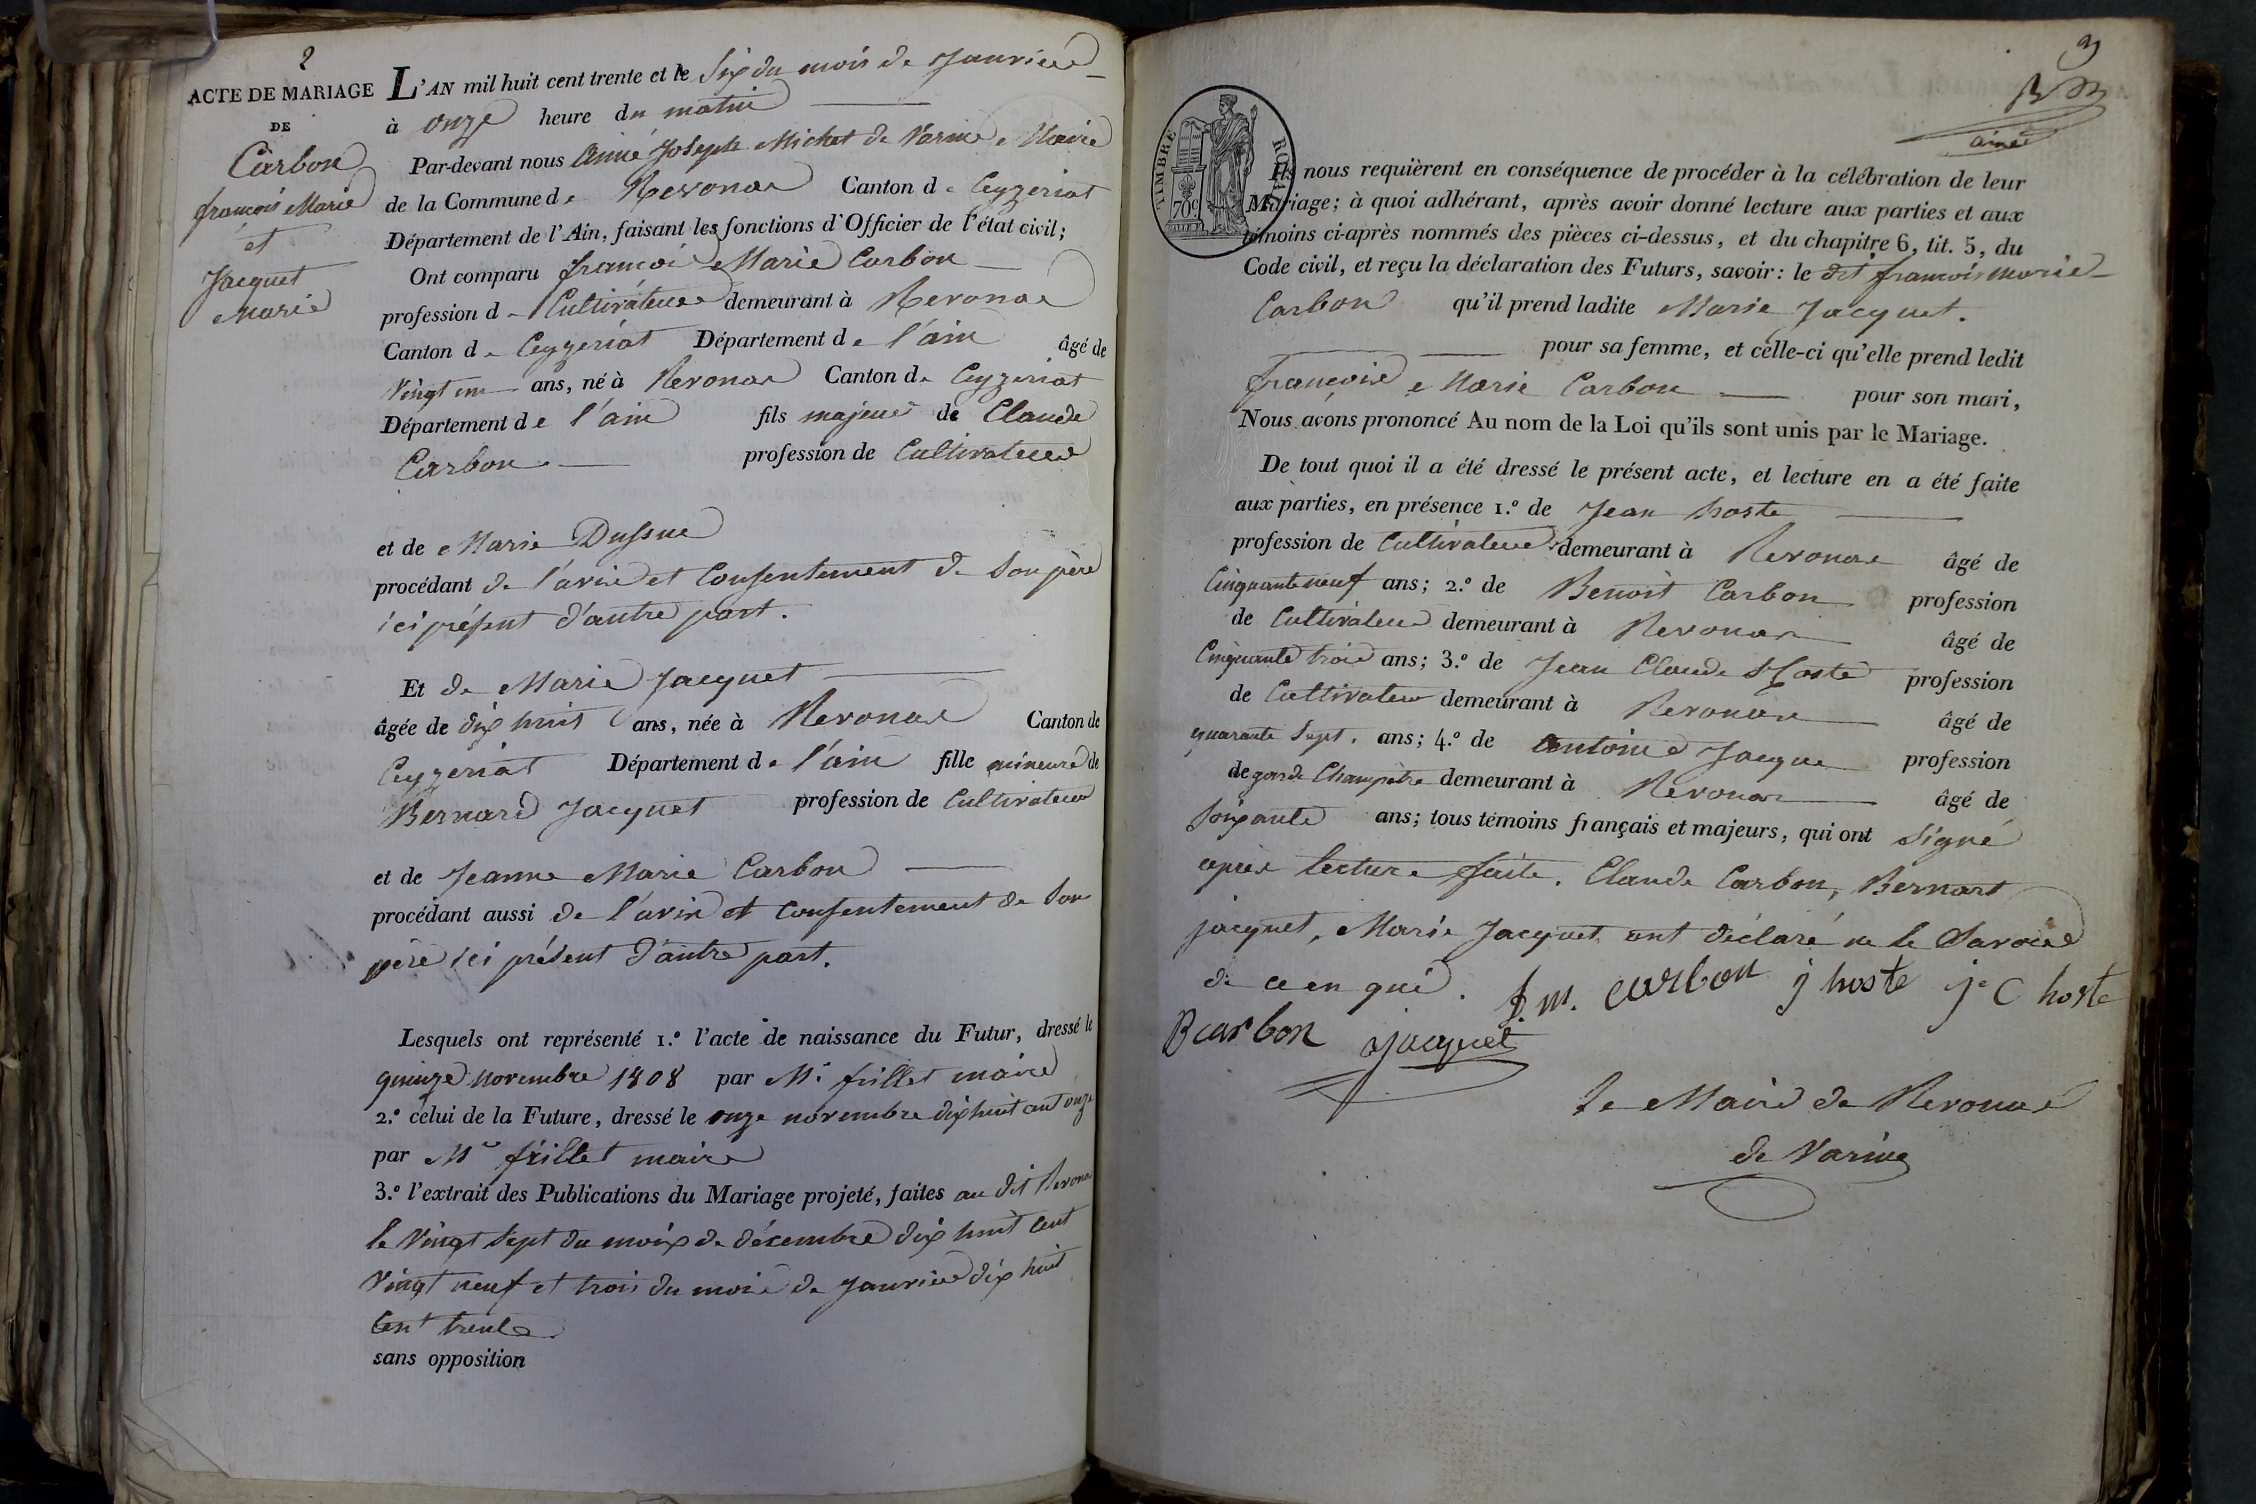 2
ACTE DE MARIAGE
DE
Carbon
françois Marie
et
Jacquet
Marie
L'AN mil huit cent trente et le Six du mois de Janvier
à onze heure du matin
Par-devant nous Aimé Joseph Michel de Varine Maire
de la Commune de Revonas Canton de Ceyzeriat
Département de l'Ain, faisant les fonctions d'Officier de l'état civil;
Ont comparu françois Marie Carbon
profession de Cultivateur demeurant à Revonas
Canton de Ceyzeriat Département de l'ain âgé de
Vingt un ans, né à Revonas Canton de Ceyzeriat
Département de l'ain fils majeur de Claude
Carbon profession de Cultivateur
et de Marie Dussue
procédant de l'avis et Consentement de Son père
ici présent d'autre part.
Et de Marie Jacquet
âgée de dix huit ans, née à Revonas Canton de
Ceyzeriat Département de l'ain fille mineure de
Bernard Jacquet profession de Cultivateur
et de Jeanne Marie Carbon
procédant aussi de l'avis et Consentement de Son
père ici présent d'autre part.
Lesquels ont représenté 1.º l'acte de naissance du Futur, dressé le
quinze novembre 1808 par Mr frillet maire
2.º celui de la Future, dressé le onze novembre dix huit cent onze
par Mr frillet maire
3.º l'extrait des Publications du Mariage projeté, faites au dit Revonas
le Vingt Sept du mois de décembre dix huit Cent
Vingt neuf et trois du mois de Janvier dix huit
Cent trente
sans opposition
3
TIMBRE ROYAL
70c
Ils nous requièrent en conséquence de procéder à la célébration de leur
Mariage; à quoi adhérant, après avoir donné lecture aux parties et aux
témoins ci-après nommés des pièces ci-dessus, et du chapitre 6, tit. 5, du
Code civil, et reçu la déclaration des Futurs, savoir: le dit françois Marie
Carbon qu'il prend ladite Marie Jacquet.
pour sa femme, et celle-ci qu'elle prend ledit
françois Marie Carbon pour son mari,
Nous avons prononcé Au nom de la Loi qu'ils sont unis par le Mariage.
De tout quoi il a été dressé le présent acte, et lecture en a été faite
aux parties, en présence 1.º de Jean hoste
profession de Cultivateur demeurant à Revonas âgé de
Cinquante neuf ans; 2.º de Benoit Carbon profession
de Cultivateur demeurant à Revonas âgé de
Cinquante trois ans; 3.º de Jean Claude hoste profession
de Cultivateur demeurant à Revonas âgé de
quarante Sept. ans; 4.º de antoine Jacque profession
de garde Champêtre demeurant à Revonas âgé de
Soixante ans; tous témoins français et majeurs, qui ont Signé
après lecture faite. Claude Carbon, Bernart
jacquet, Marie Jacquet ont déclaré ne le Savoir
de ce en quis.
f. m. carbon j hoste j. C hoste
B carbon jacquet
Le Maire de Revonas
de Varine